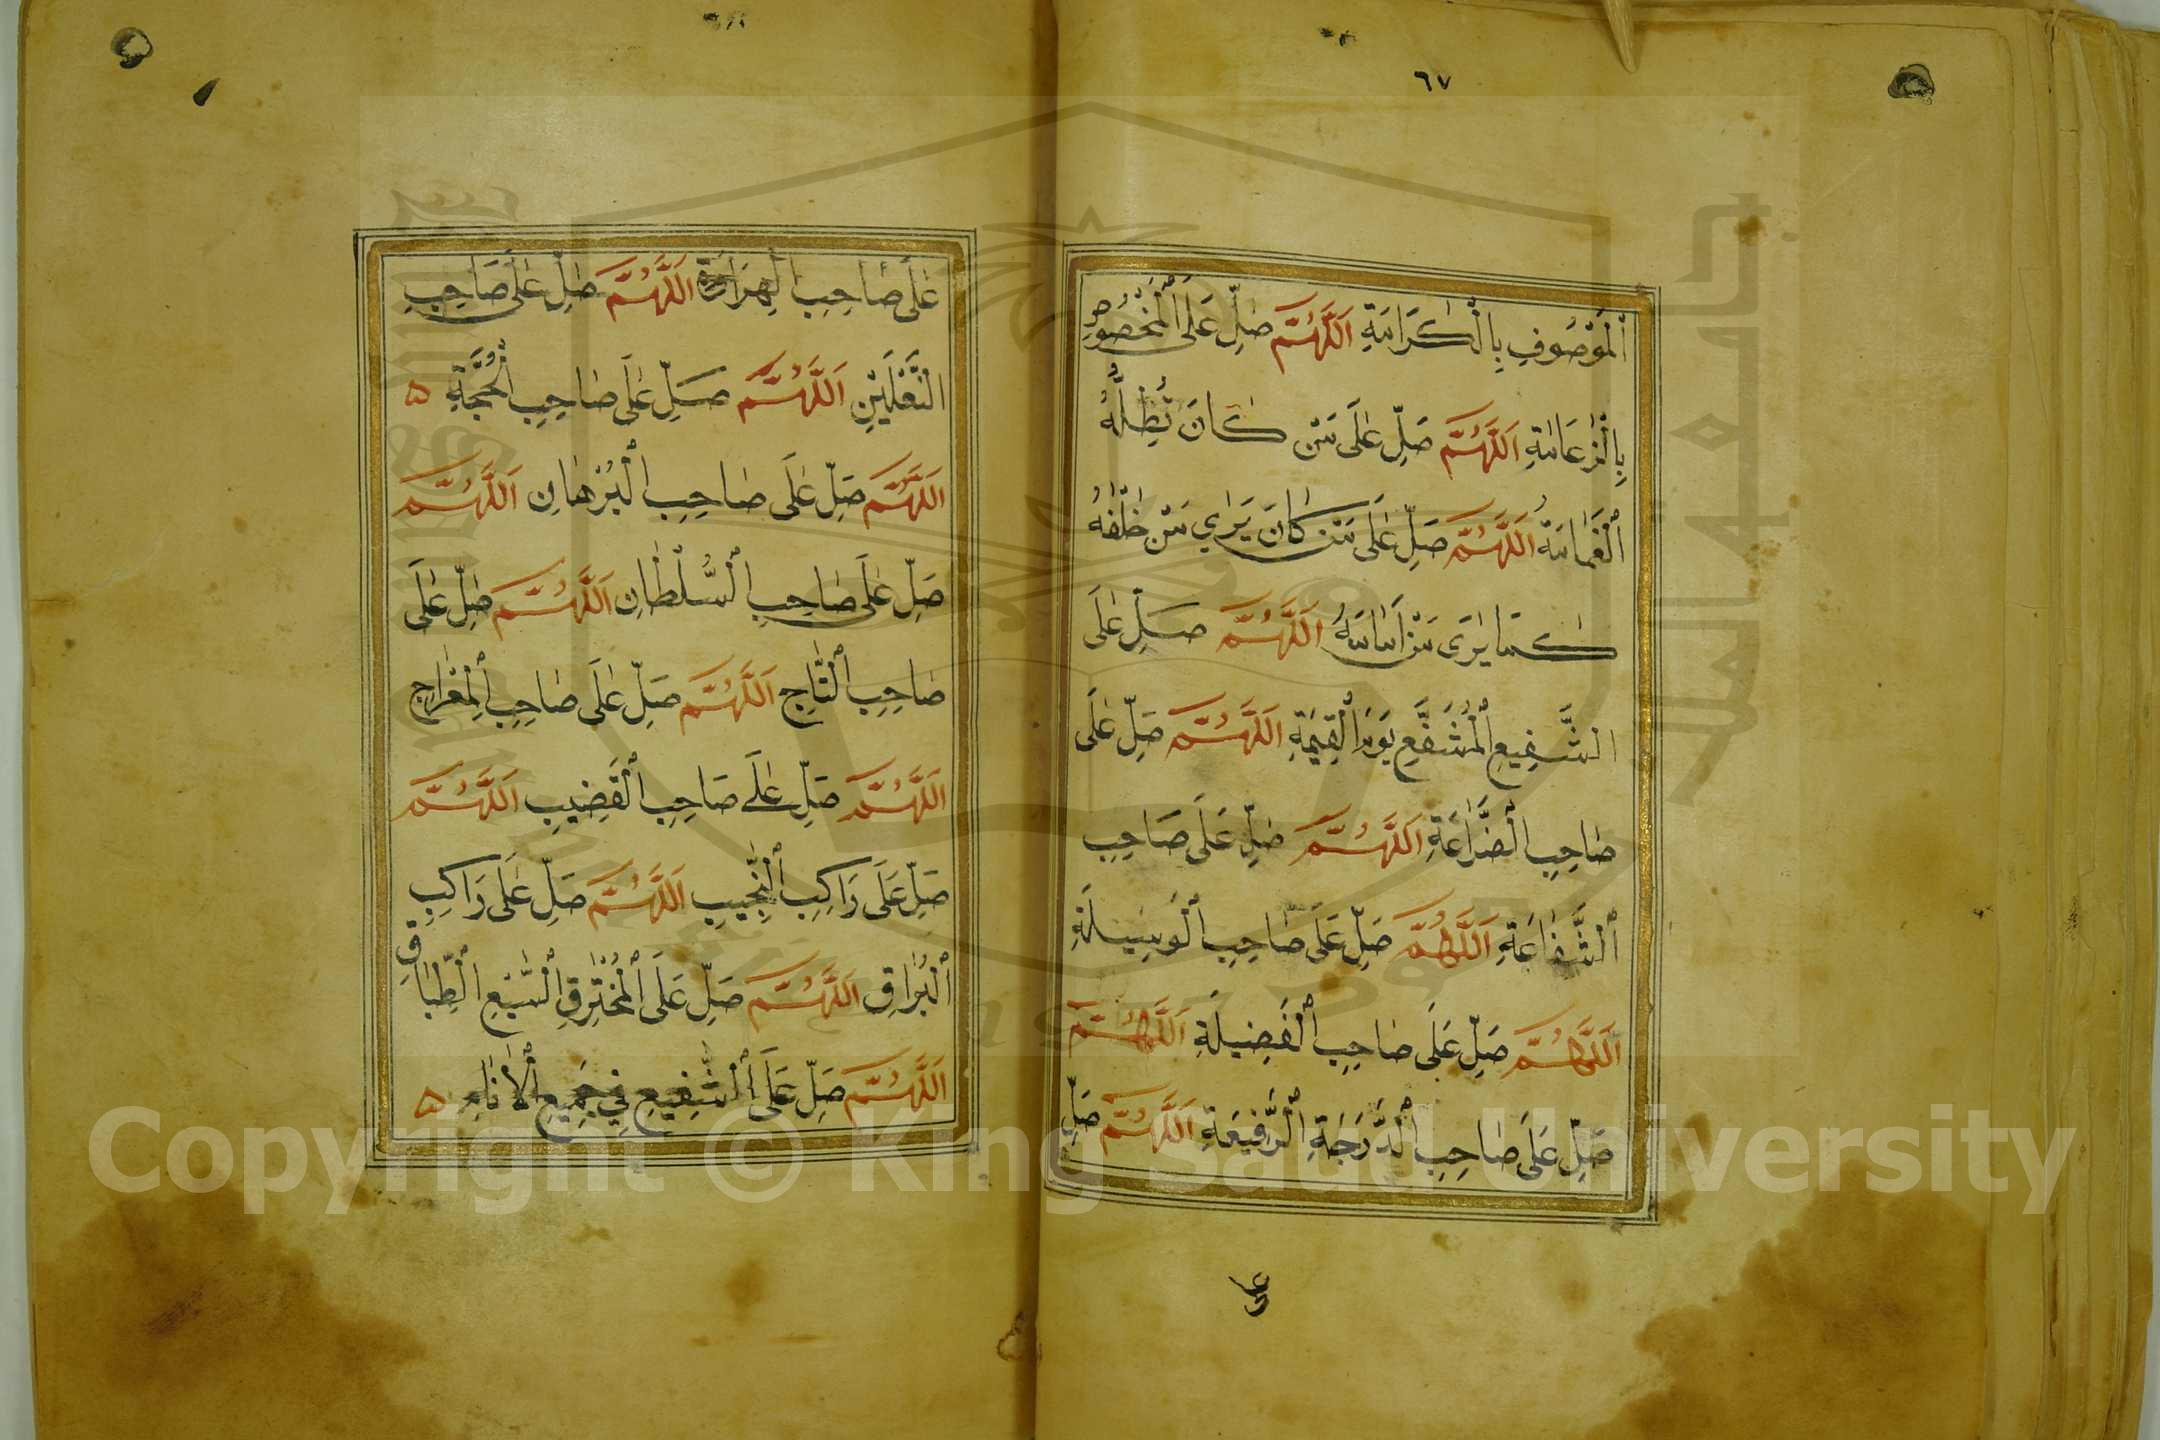 ٦٧
اَلْمَوْصُوفِ بِالْكَرَامَةِ اَللّٰهُمَّ صَلِّ عَلَى الْمَخْصُوصِ
بِالزَّعَامَةِ اَللّٰهُمَّ صَلِّ عَلَى مَنْ كَانَ تُظِلُّهُ
اَلْغَمَامَةُ اَللّٰهُمَّ صَلِّ عَلَى مَنْ كَانَ يَرَى مَنْ خَلْفَهُ
كَمَا يَرَى مَنْ اَمَامَهُ اَللّٰهُمَّ صَلِّ عَلَى
الشَّفِيعِ الْمُشَفَّعِ يَوْمَ الْقِيٰمَةِ اَللّٰهُمَّ صَلِّ عَلَى
صَاحِبِ الضَّرَاعَةِ اَللّٰهُمَّ صَلِّ عَلَى صَاحِبِ
الشَّفَاعَةِ اَللّٰهُمَّ صَلِّ عَلَى صَاحِبِ الْوَسِيلَةِ
اَللّٰهُمَّ صَلِّ عَلَى صَاحِبِ الْفَضِيلَةِ اَللّٰهُمَّ
صَلِّ عَلَى صَاحِبِ الدَّرَجَةِ الرَّفِيعَةِ اَللّٰهُمَّ صَلِّ
على
عَلَى صَاحِبِ الْهِرَاوَةِ اَللّٰهُمَّ صَلِّ عَلَى صَاحِبِ
النَّعْلَيْنِ اَللّٰهُمَّ صَلِّ عَلَى صَاحِبِ الْحُجَّةِ ۵
اَللّٰهُمَّ صَلِّ عَلَى صَاحِبِ الْبُرْهَانِ اَللّٰهُمَّ
صَلِّ عَلَى صَاحِبِ السُّلْطَانِ اَللّٰهُمَّ صَلِّ عَلَى
صَاحِبِ التَّاجِ اَللّٰهُمَّ صَلِّ عَلَى صَاحِبِ الْمِعْرَاجِ
اَللّٰهُمَّ صَلِّ عَلَى صَاحِبِ الْقَضِيبِ اَللّٰهُمَّ
صَلِّ عَلَى رَاكِبِ النَّجِيبِ اَللّٰهُمَّ صَلِّ عَلَى رَاكِبِ
الْبُرَاقِ اَللّٰهُمَّ صَلِّ عَلَى الْمُخْتَرِقِ السَّبْعِ الطِّبَاقِ
اَللّٰهُمَّ صَلِّ عَلَى الشَّفِيعِ فِي جَمِيعِ الْاَنَامِ ۵
Copyright © King Saud University